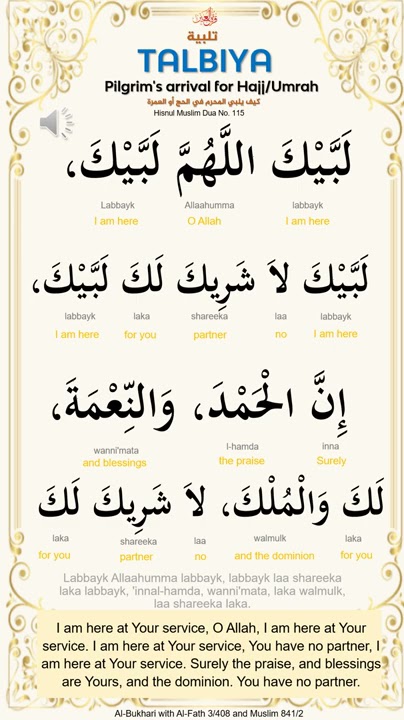 تلبية
TALBIYA
Pilgrim's arrival for Hajj/Umrah
كيف يلبي المحرم في الحج أو العمرة
Hisnul Muslim Dua No. 115
لَبَّيْكَ اللَّهُمَّ لَبَّيْكَ،
Labbayk Allaahumma labbayk
I am here O Allah I am here
لَبَّيْكَ لاَ شَرِيكَ لَكَ لَبَّيْكَ،
labbayk laka shareeka laa labbayk
I am here for you partner no I am here
إِنَّ الْحَمْدَ، وَالنِّعْمَةَ،
wanni'mata l-hamda inna
and blessings the praise Surely
لَكَ وَالْمُلْكَ، لاَ شَرِيكَ لَكَ
laka shareeka laa walmulk laka
for you partner no and the dominion for you
Labbayk Allaahumma labbayk, labbayk laa shareeka
laka labbayk, 'innal-hamda, wanni'mata, laka walmulk,
laa shareeka laka.
I am here at Your service, O Allah, I am here at Your
service. I am here at Your service, You have no partner, I
am here at Your service. Surely the praise, and blessings
are Yours, and the dominion. You have no partner.
Al-Bukhari with Al-Fath 3/408 and Muslim 841/2